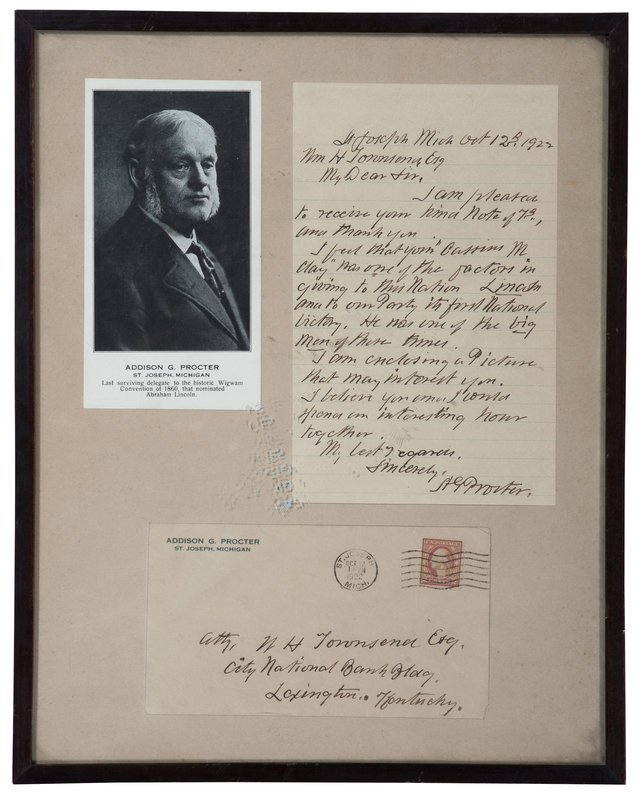 ADDISON G. PROCTER
ST. JOSEPH, MICHIGAN
Last surviving delegate to the historic Wigwam
Convention of 1860, that nominated
Abraham Lincoln.
St Joseph Mich Oct 12th 1922
Wm H Townsend, Esq
My Dear Sir.
I am pleased
to receive your kind Note of 7th,
and thank you.
I feel that your "Cassius M
Clay" was one of the factors in
giving to this Nation Lincoln
and to our Party its first National
Victory. He was one of the big
men of those times.
I am enclosing a Picture
that may interest you.
I believe you and I could
spend an interesting hour
together.
My best regards.
Sincerely,
A G Procter.
ADDISON G. PROCTER
ST. JOSEPH, MICHIGAN
ST. JOSEPH
OCT 12
1922
MICH.
Atty, W H Townsend Esq.
City National Bank Bldg.
Lexington.. Kentucky.